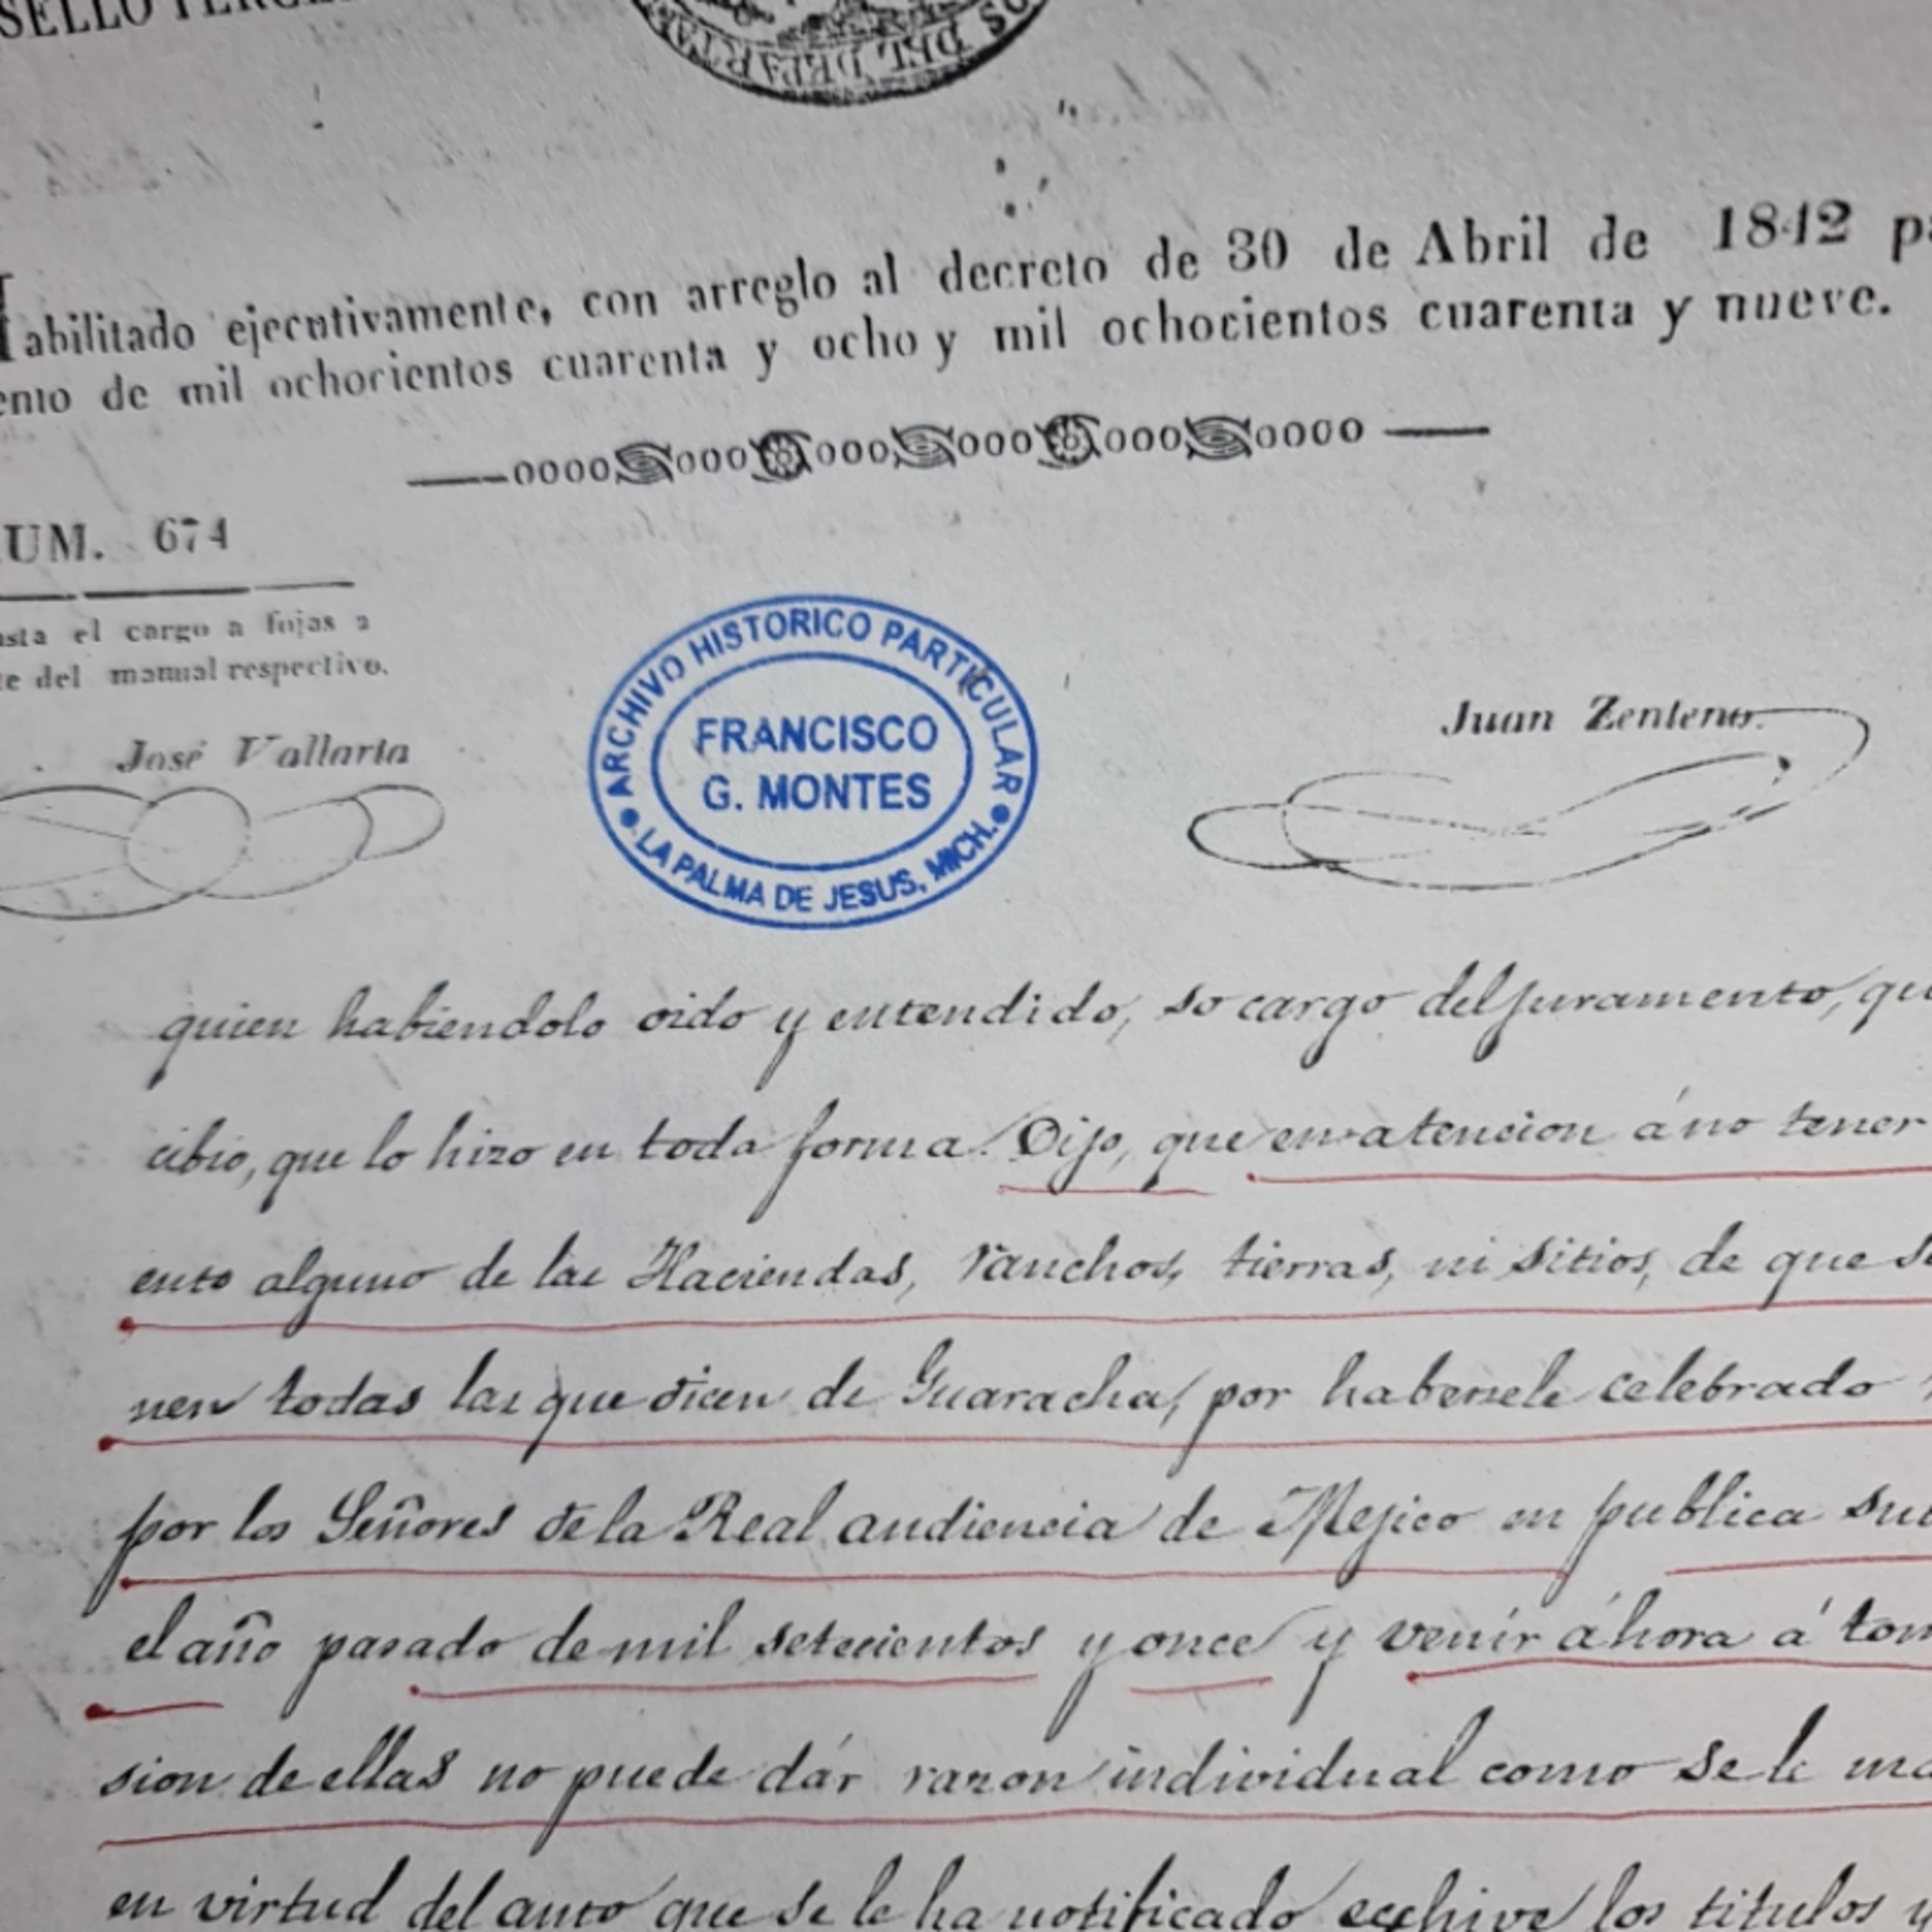 SELLO TERCE
DEL DEPARTA
Habilitado ejecutivamente, con arreglo al decreto de 30 de Abril de 1842 pa
ento de mil ochocientos cuarenta y ocho y mil ochocientos cuarenta y nueve.
UM. 674
sta el cargo a fojas 2
te del manual respectivo.
José Vallarta
ARCHIVO HISTORICO PARTICULAR
FRANCISCO
G. MONTES
LA PALMA DE JESUS, MICH.
Juan Zenteno.
quien habiendolo oido y entendido, so cargo del juramento, qu
cibio, que lo hizo en toda forma. Dijo, que en atencion á no tener
ento alguno de las Haciendas, ranchos, tierras, ni sitios, de que se
nen todas las que dicen de Guaracha, por habersele celebrado
por los Señores de la Real audiencia de Mejico en publica su
el año pasado de mil setecientos y once y venir áhora á tom
sion de ellas no puede dár razon individual como se le ma
en virtud del auto que se le ha notificado exhive los titulos